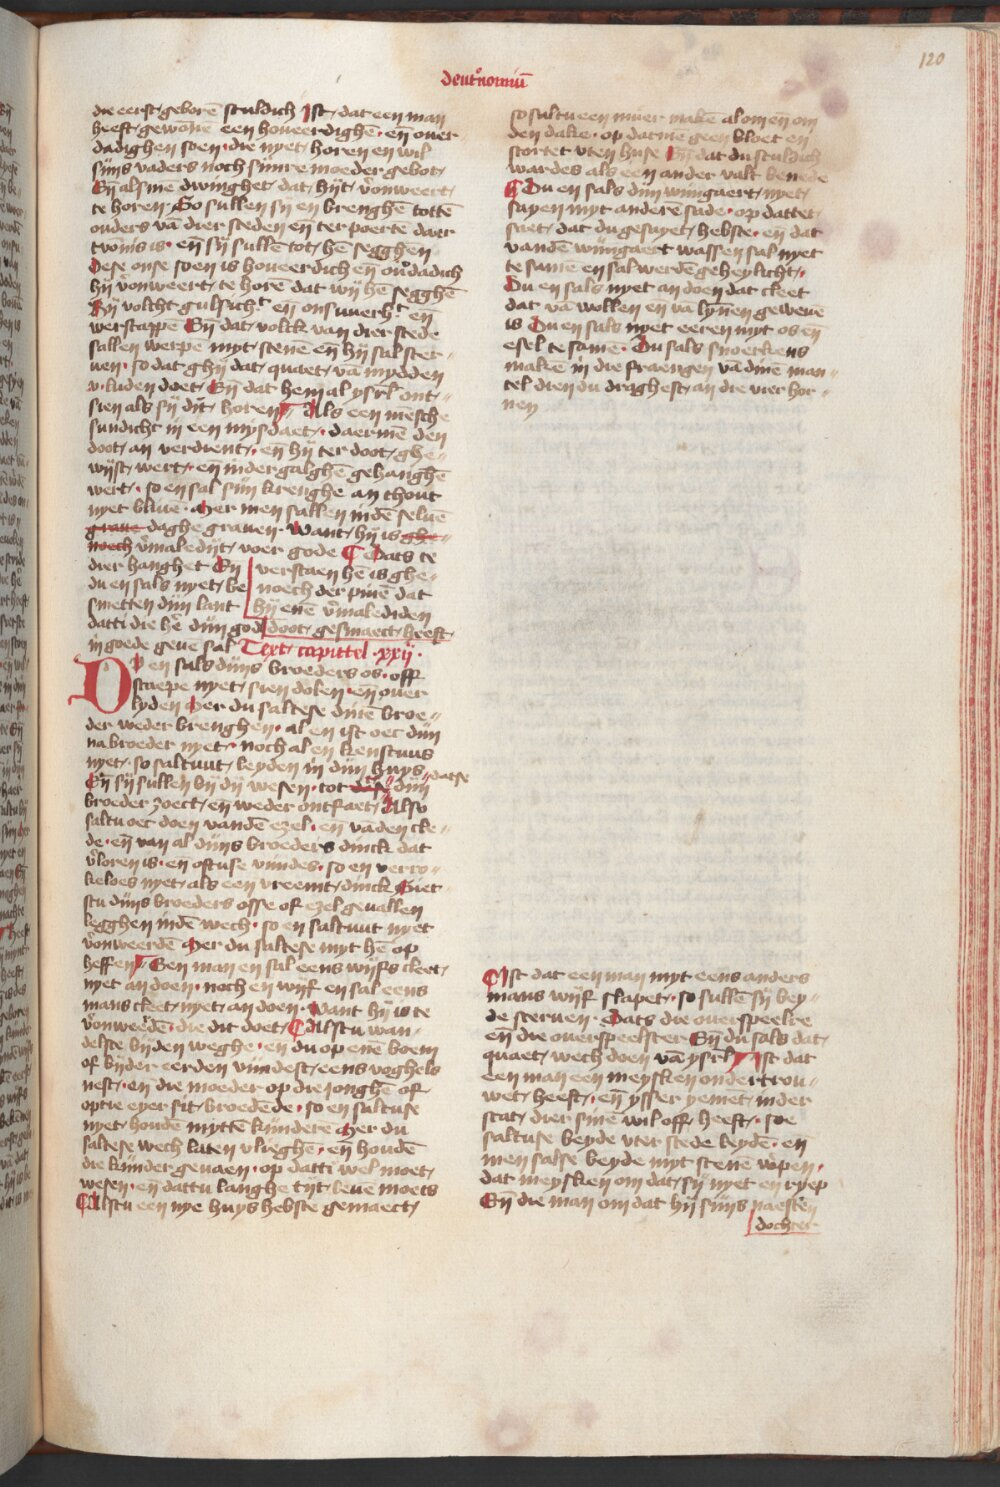 120
deut'nomiū
die eerst geborē sculdich Ist dat een man
heeft gewōnē een houeerdighē en̄ ouer
dadighen soen die nyet horen en wil
sijns vaders noch sijnre moeder gebot
En̄ alsme dwinghet dat hijt v'onweert
te horen So sullen sij en brenghē tottē
ouders vā dier steden en̄ ter poertē daer
tvōnis is en̄ sij sullē tot hē segghen
Dese onse soen is houeerdich en̄ ou'dadich
hij v'onweert te horē dat wij hē segghē
werscappē En̄ dat volck van dier stede
sallen werpē myt stenē en̄ hij sal ster
uen so dat ghij dat quaet vā mydden
v luden doet En̄ dat hem al ysrl' ont
sien als sij dit horen Als een mēsche
sundicht in een mysdaet daermē den
doot an verdient en̄ hij ter doot ghe
wijst wert en̄ in der galghē gehanghē
wert so en sal sijn krenghe an thout
nyet bliuē Mer men sallen indē seluē
graue daghe grauen Want hij is ghe
noech v'maledijt voer gode Dats te
verstaen hē is ghe
noech der pinē dat
hij enē v'malediden
doot gesmaect heeft
dier hanghet En̄
du en sals nyet be
smetten dijn lant
datti die hē dijn god
in goede geuē sal Text capittel xxij
Du en sals dijns broeders os off
scaepe nyet sien dolen en̄ ouer
lyden Mer du saltese dinē broe
der weder brenghen al en ist oec dijn
nabroeder nyet noch al en kenstuus
nyet so saltuut leyden in dijn huys
En̄ sij sullen bij dij wesen tot datse dijn
broeder zoect en̄ weder ontfaet Also
saltu oec doen vandē ezel en̄ vā den cle
de en̄ van al dijns broeders dinck dat
v'loren is en̄ oftuse vindes so en verro
keloes nyet als een vreemt dinck Siet
stu dijns broeders osse of ezel geuallen
legghen indē wech so en saltuut nyet
v'onweerdē Mer du saltese myt hē op
heffen Een man en sal eens wijfs cleet
nyet an doen noch en wijf en sal eens
mans cleet nyet an doen Want hij is te
v'onweerdē die dit doet Alstu wan
delste bijden weghe en du op enē boem
of bijder eerden vindest eens voghels
nest en die moeder op die jonghē of
optie eyer sit broedēde so en saltuse
nyet houdē myttē kijnderē Mer du
saltese wech laten vlieghē en̄ houdē
die kijnder geuaen op datti wel moet
wesen en̄ dattu langhe tijt leuē moets
Alstu een nye huys hebste gemaect
so saltu een muer makē al om en̄ om
den dake op datme geen bloet en
stortet vten huse En̄ dat du sculdich
wordes als een ander valt benede
Du en sals dijn wijngaert nyet
sayen myt anderē sade op dattet
saet dat du gesayet hebste en̄ dat
vandē wijngaert wassen sal nyet
te samē en sal werdē geheylicht
Du en sals nyet an doen dat cleet
dat vā wollen en̄ vā lynen geweuē
is Du en sals nyet eeren myt os en̄
esel te samē Du sals snoerkens
makē in die fraengen vā dinē man
tel dien du draghest an die vier hor
nen
Ist dat een man myt eens anders
mans wijf slapet so sullē sij bey
de steruen Dats die ouerspeelre
en̄ die ouerspeelster En̄ du sals dat
quaet wech doen vā ysrl' Ist dat
een man een meysken ondertrou
wet heeft en̄ ysser yemet in der
stat dier sinē wil off heeft soe
saltuse beyde vter stede leydē en̄
men salse beyde myt stenē w'pen
dat meysken om dat sij nyet en ryep
En̄ die man om dat hij sijns naesten
dochter